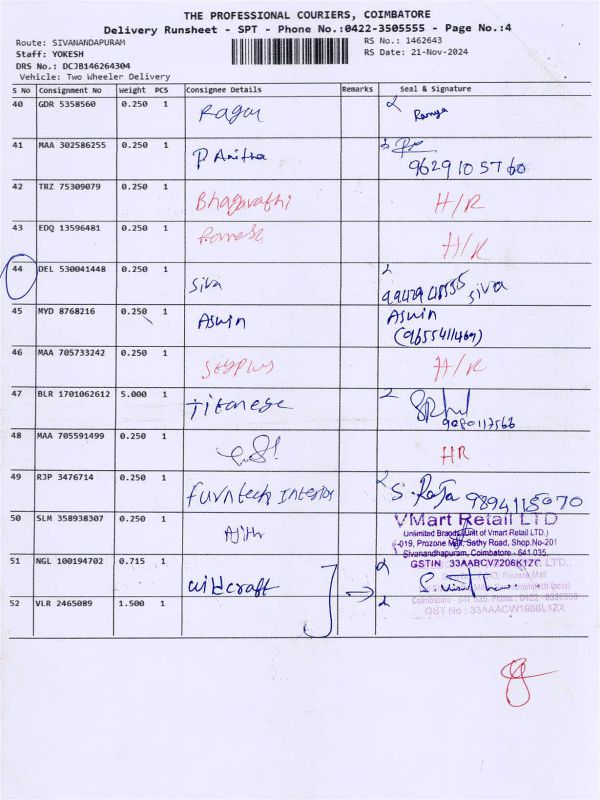 THE PROFESSIONAL COURIERS, COIMBATORE
Delivery Runsheet - SPT - Phone No.:0422-3505555 - Page No.:4
Route: SIVANANDAPURAM
RS No.: 1462643
Staff: YOKESH
RS Date: 21-Nov-2024
DRS No.: DCJB146264304
Vehicle: Two Wheeler Delivery
S No Consignment No Weight PCS Consignee Details Remarks Seal & Signature
40 GDR 5358560 0.250 1 Ramya
41 MAA 302586255 0.250 1 P Anitha
9629105760
42 TRZ 75309079 0.250 1 Bhagavathi H/R
43 EDQ 13596481 0.250 1 Ramesh H/R
44 DEL 530041448 0.250 1 Siva Siva
45 MYD 8768216 0.250 1 Aswin Aswin
(9655411469)
46 MAA 705733242 0.250 1 H/R
47 BLR 1701062612 5.000 1 Titanese
9080117566
48 MAA 705591499 0.250 1 HR
49 RJP 3476714 0.250 1 Furntech Interior S. Raja 9894115070
50 SLM 358938307 0.250 1 Ajith
VMart Retail LTD
Unlimited Brands(Unit of Vmart Retail LTD.)
-019, Prozone Mall, Sathy Road, Shop.No-201
Sivanandhapuram, Coimbatore - 641 035.
GSTIN : 33AABCV7206K1ZC
51 NGL 100194702 0.715 1 Wildcraft
Prozone Mall
52 VLR 2465089 1.500 1
GST No : 33AAACW1988L1ZX